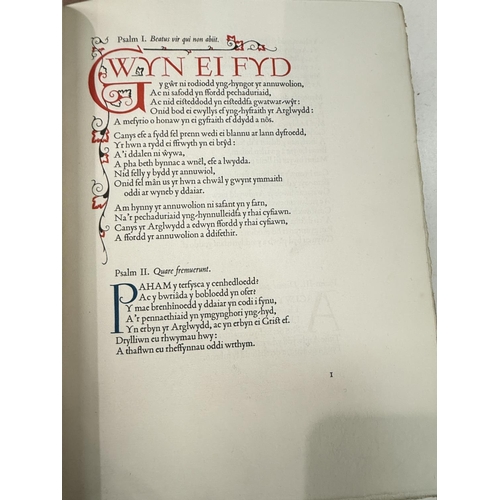 Psalm I. Beatus vir qui non abiit.
GWYN EI FYD
y gŵr ni rodiodd yng-hyngor yr annuwolion,
Ac ni safodd yn ffordd pechaduriaid,
Ac nid eisteddodd yn eisteddfa gwatwar-wŷr:
Onid bod ei ewyllys ef yng-hyfraith yr Arglwydd:
A mefyrio o honaw yn ei gyfraith ef ddydd a nôs.
Canys efe a fydd fel prenn wedi ei blannu ar lann dyfroedd,
Yr hwn a rydd ei ffrwyth yn ei brŷd:
A'i ddalen ni ŵywa,
A pha beth bynnac a wnêl, efe a lwydda.
Nid felly y bydd yr annuwiol,
Onid fel mân us yr hwn a chwâl y gwynt ymmaith
oddi ar wyneb y ddaiar.
Am hynny yr annuwolion ni safant yn y farn,
Na'r pechaduriaid yng-hynnulleidfa y rhai cyfiawn.
Canys yr Arglwydd a edwyn ffordd y rhai cyfiawn,
A ffordd yr annuwolion a ddifethir.
Psalm II. Quare fremuerunt.
PAHAM y terfysca y cenhedloedd?
Ac y bwriâda y bobloedd yn ofer?
Y mae brenhinoedd y ddaiar yn codi i fynu,
A'r pennaethiaid yn ymgynghori yng-hyd,
Yn erbyn yr Arglwydd, ac yn erbyn ei Grist ef.
Drylliwn eu rhwymau hwy:
A thaflwn eu rheffynnau oddi wrthym.
1